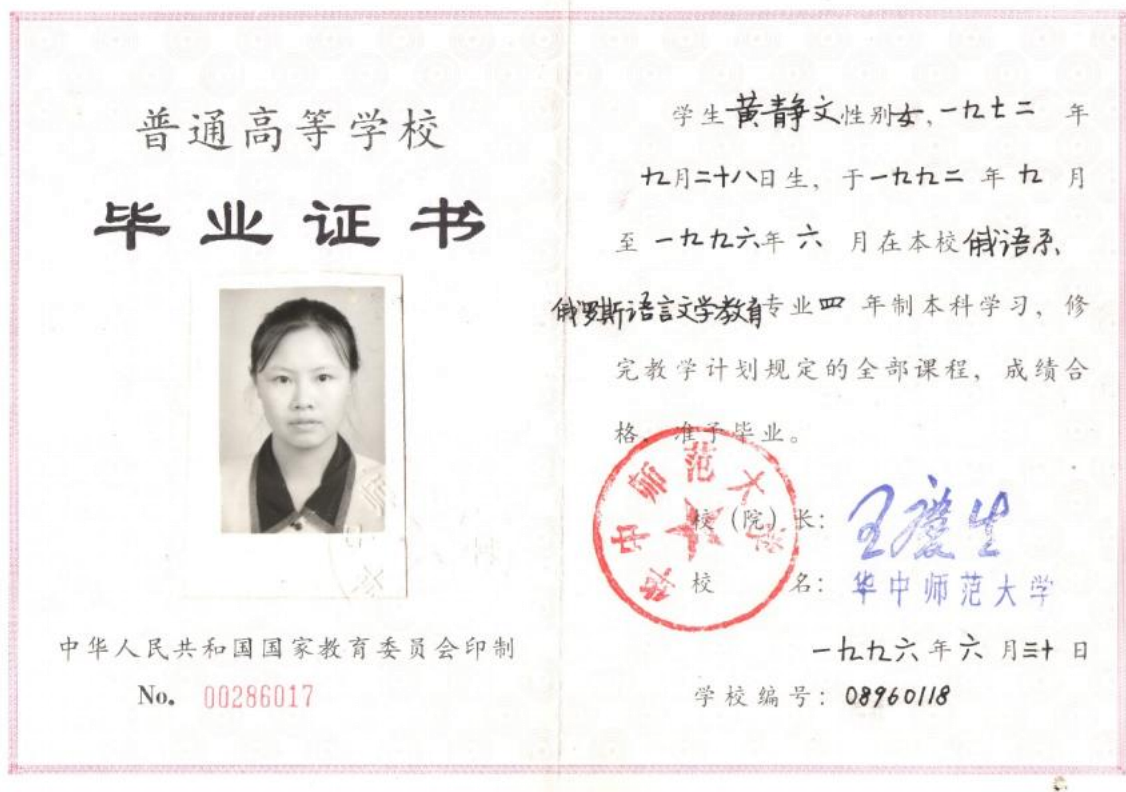 普通高等学校
毕业证书
中华人民共和国国家教育委员会印制
No. 00286017
学生黄静文性别女,一九七二 年
九月二十八日生, 于一九九二 年 九 月
至 一九九六年 六 月在本校俄语系
俄罗斯语言文学教育专业四 年制本科学习, 修
完教学计划规定的全部课程, 成绩合
格, 准予毕业。
华中师范大学
校(院)长: 王庆生
校 名: 华中师范大学
一九九六年六月三十日
学校编号: 08960118